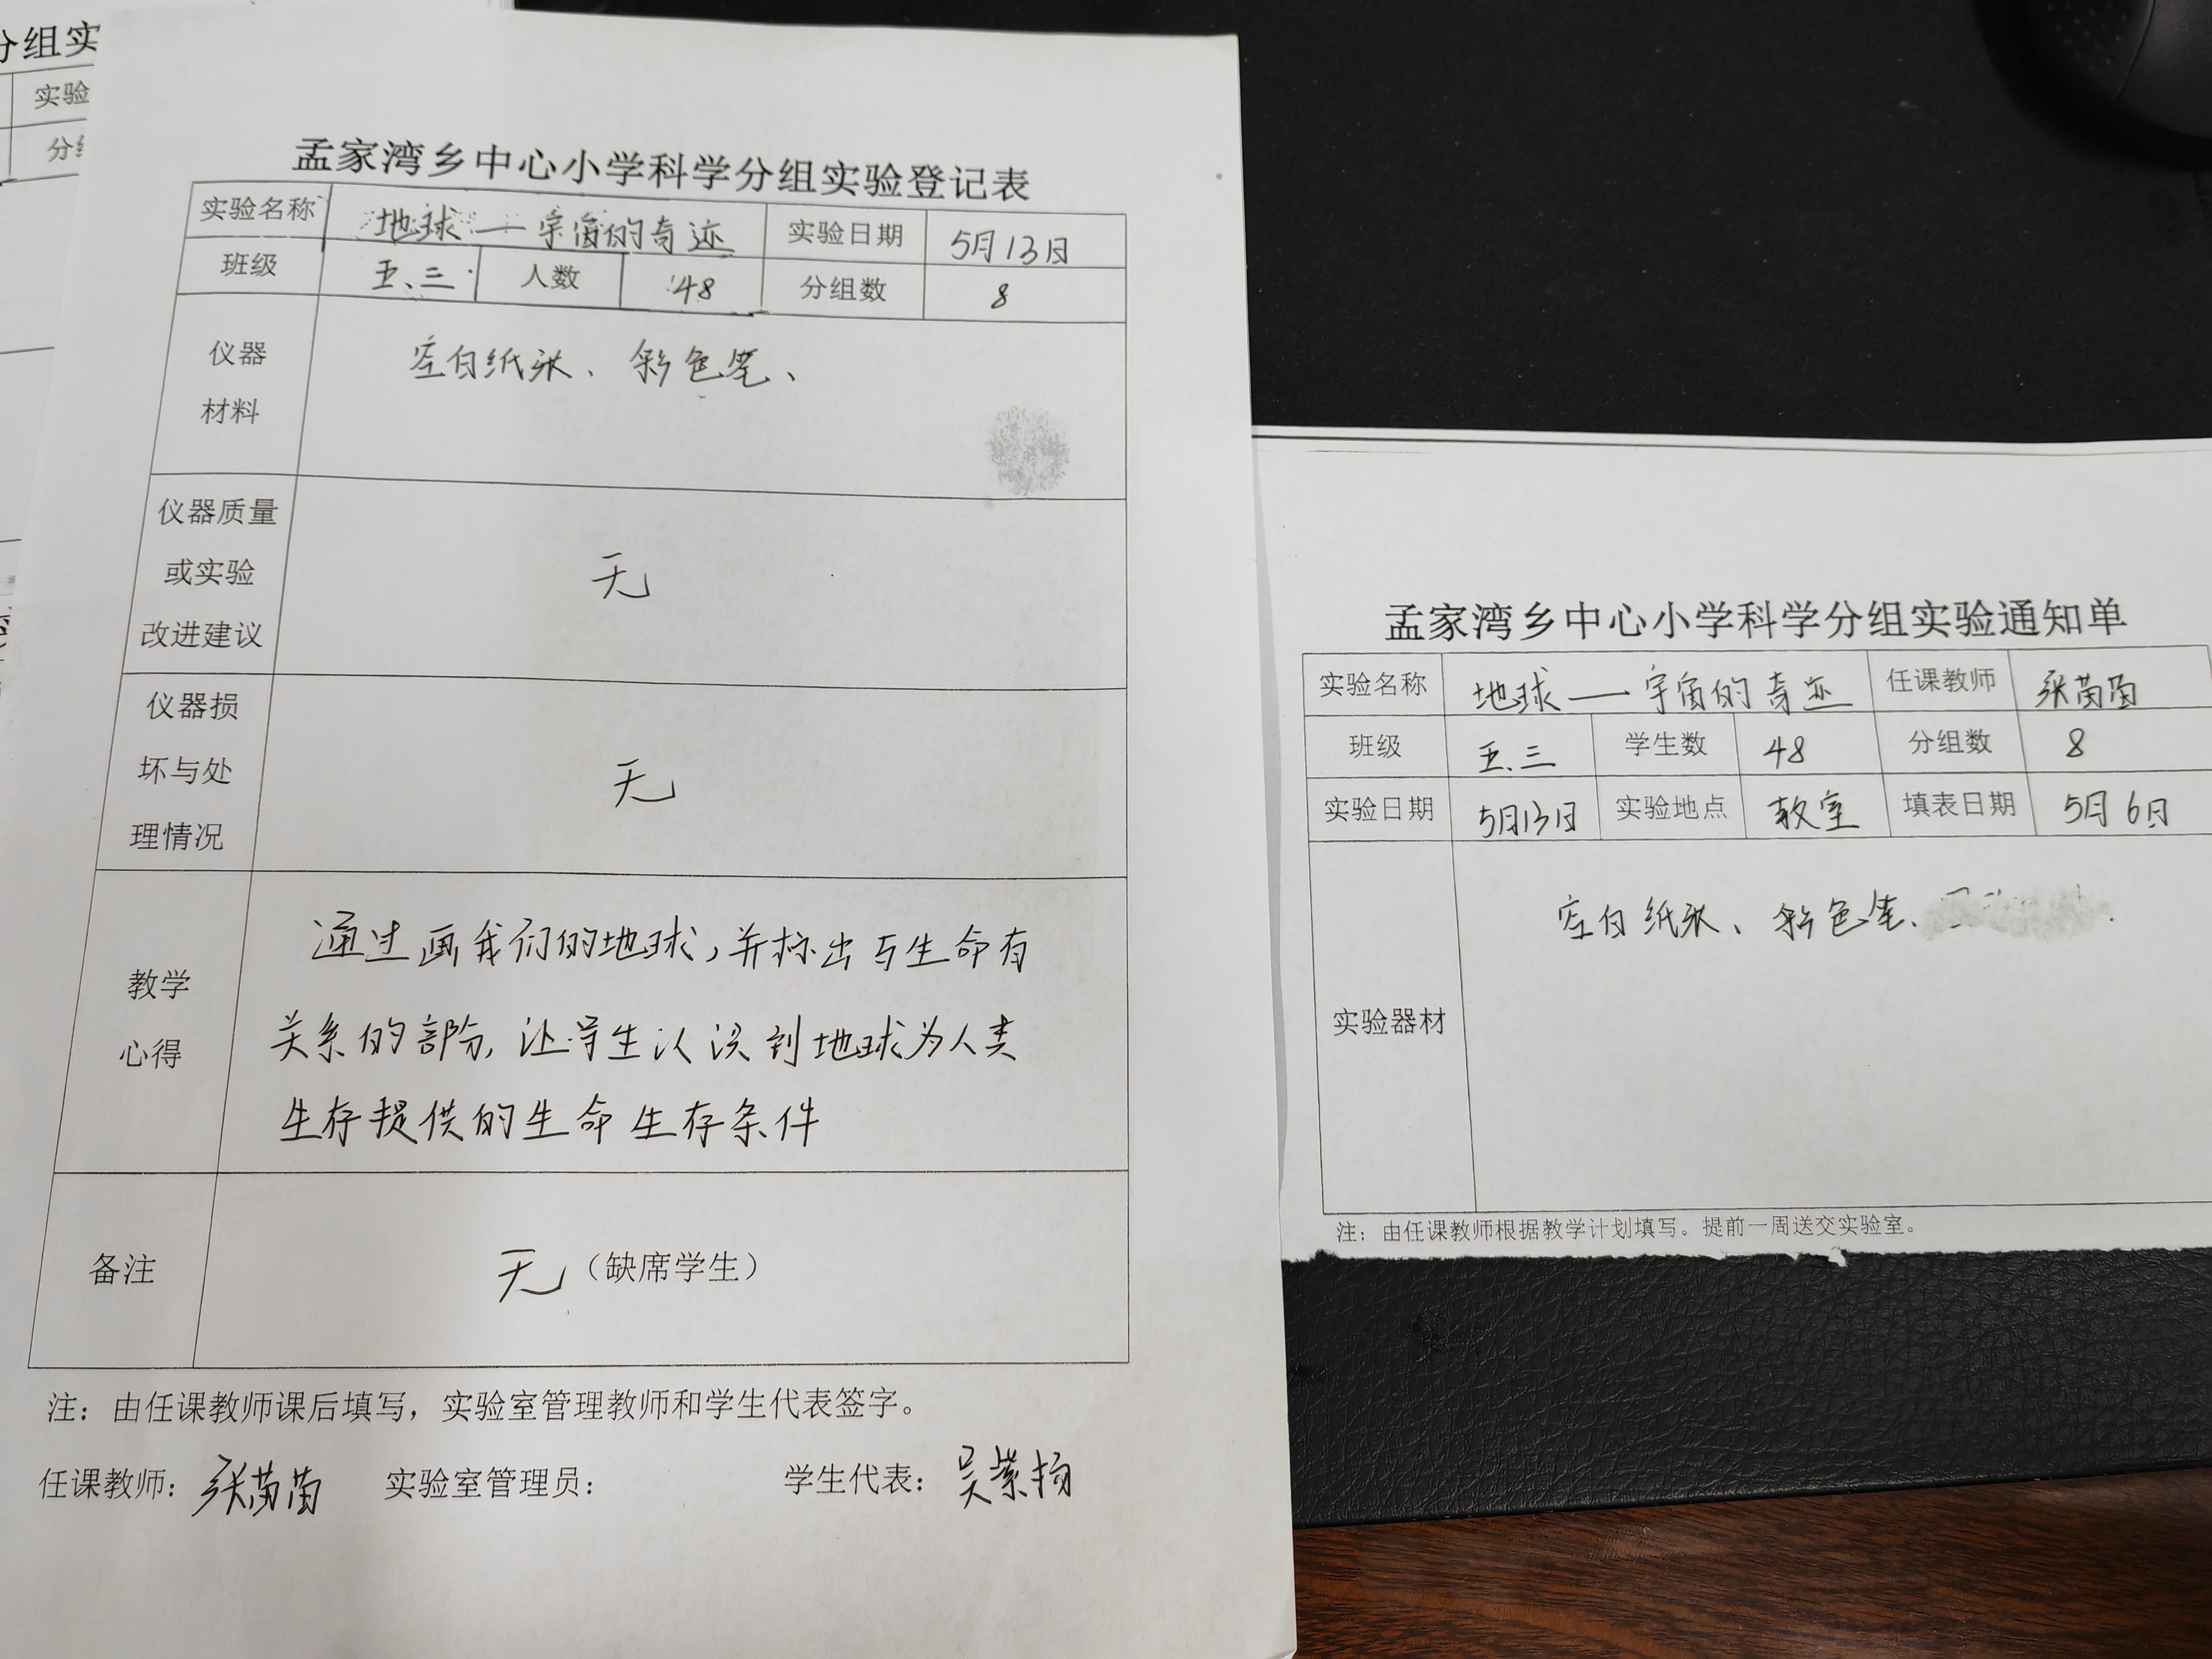 分组实
实验
分组
孟家湾乡中心小学科学分组实验登记表
实验名称 地球——宇宙的奇迹 实验日期 5月13日
班级 五、三 人数 48 分组数 8
仪器
材料
空白纸张、彩色笔、
仪器质量
或实验
改进建议
无
仪器损
坏与处
理情况
无
教学
心得
通过画我们的地球,并标出与生命有
关系的部分,让学生认识到地球为人类
生存提供的生命生存条件
备注 无(缺席学生)
注:由任课教师课后填写,实验室管理教师和学生代表签字。
任课教师:张苗苗 实验室管理员: 学生代表:吴紫扬
孟家湾乡中心小学科学分组实验通知单
实验名称 地球——宇宙的奇迹 任课教师 张苗苗
班级 五、三 学生数 48 分组数 8
实验日期 5月13日 实验地点 教室 填表日期 5月6日
实验器材 空白纸张、彩色笔、
注:由任课教师根据教学计划填写。提前一周送交实验室。